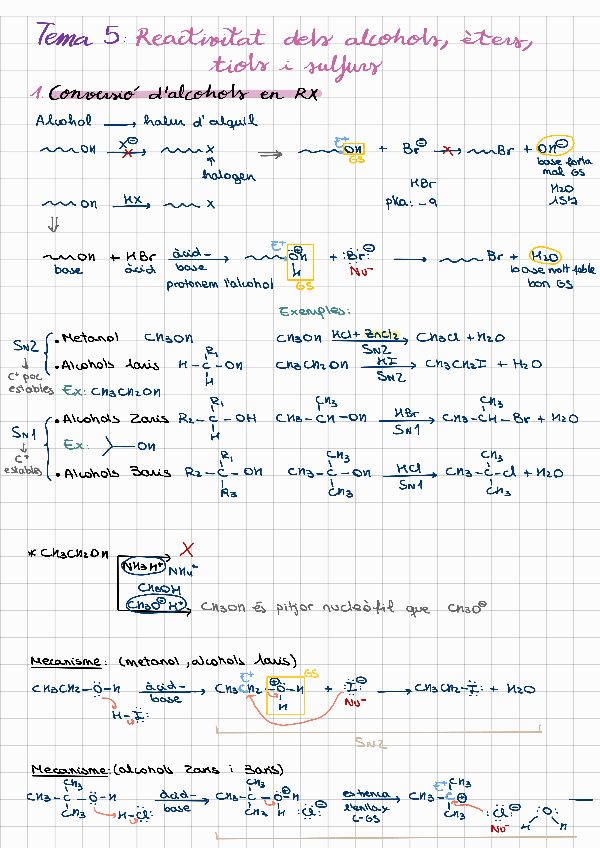 Tema 5: Reactivitat dels alcohols, èters,
tiols i sulfurs
1. Conversió d'alcohols en RX
Alcohol → halur d'alquil
OH X⊖ X ⇒ OH + Br⊖ → Br + OH⊖
E+ GS
halogen
base forta
mal GS
HBr H2O
pKa: -9 15,7
OH HX → X
OH + HBr àcid-base → O⊕ H + :Br:⊖ → Br + H2O
base àcid protonem l'alcohol E+ GS Nu- base molt feble
bon GS
Exemples:
SN2
C+ poc
estables
• Metanol CH3OH CH3OH HCl + ZnCl2 → SN2 CH3Cl + H2O
• Alcohols 1aris R1 H-C-OH H CH3CH2OH HI → SN2 CH3CH2I + H2O
Ex: CH3CH2OH
SN1
C+
estables
• Alcohols 2aris R1 R2-C-OH H CH3 CH3-CH-OH HBr → SN1 CH3 CH3-CH-Br + H2O
Ex: OH
• Alcohols 3aris R1 R2-C-OH R3 CH3 CH3-C-OH CH3 HCl → SN1 CH3 CH3-C-Cl CH3 + H2O
* CH3CH2OH X
NH3 H+ NH4+
CH3OH
CH3O⊖ H+ CH3OH és pitjor nucleòfil que CH3O⊖
Mecanisme: (metanol, alcohols 1aris)
CH3CH2-O-H àcid-base → CH3CH2-O⊕-H + :I:⊖ → CH3CH2-I: + H2O
H-I: E+ H GS Nu-
SN2
Mecanisme: (alcohols 2aris i 3aris)
CH3 CH3-C-O-H CH3 H-Cl: àcid-base → CH3 CH3-C-O⊕-H CH3 H :Cl:⊖ estrenca l'enllaç C-GS → E+ CH3 CH3-C⊕ CH3 :Cl:⊖ Nu- H O H